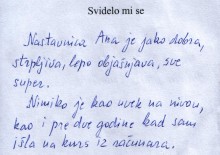 Svidelo mi se
Nastavnica Ana je jako dobra,
strpljiva, lepo objašnjava, sve
super.
Nimiko je kao uvek na nivou,
kao i pre dve godine kad sam
išla na kurs iz računara.